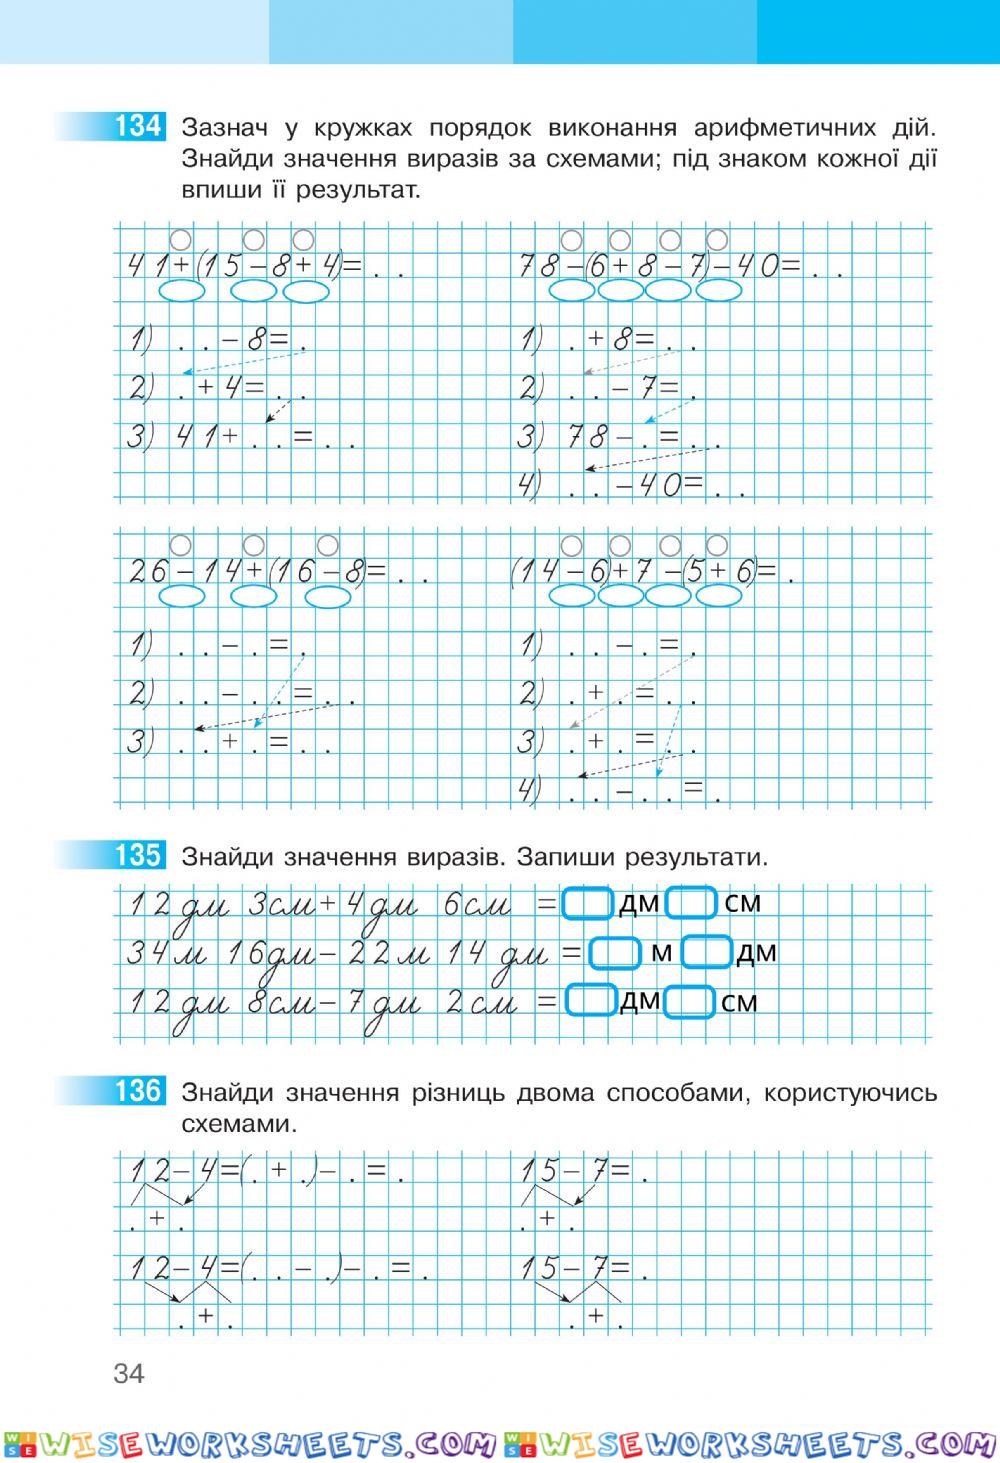 134 Зазнач у кружках порядок виконання арифметичних дій.
Знайди значення виразів за схемами; під знаком кожної дії
впиши її результат.
41+(15-8+4)=..
1) ..-8=.
2) .+4=..
3) 41+..=..
78-(6+8-7)-40=..
1) .+8=..
2) ..-7=.
3) 78-.=..
4) ..-40=..
26-14+(16-8)=..
1) ..-.=.
2) ..-..=..
3) ..+.=..
(14-6)+7-(5+6)=.
1) ..-.=.
2) .+.=..
3) .+.=..
4) ..-..=.
135 Знайди значення виразів. Запиши результати.
12 дм 3см+4дм 6см = дм см
34м 16дм-22м 14 дм = м дм
12дм 8см-7дм 2см = дм см
136 Знайди значення різниць двома способами, користуючись
схемами.
12-4=(.+.)-.=.
.+.
15-7=.
.+.
12-4=(..-.)-.=.
.+.
15-7=.
.+.
34
WISE WISEWORKSHEETS.COM WISE WISEWORKSHEETS.COM